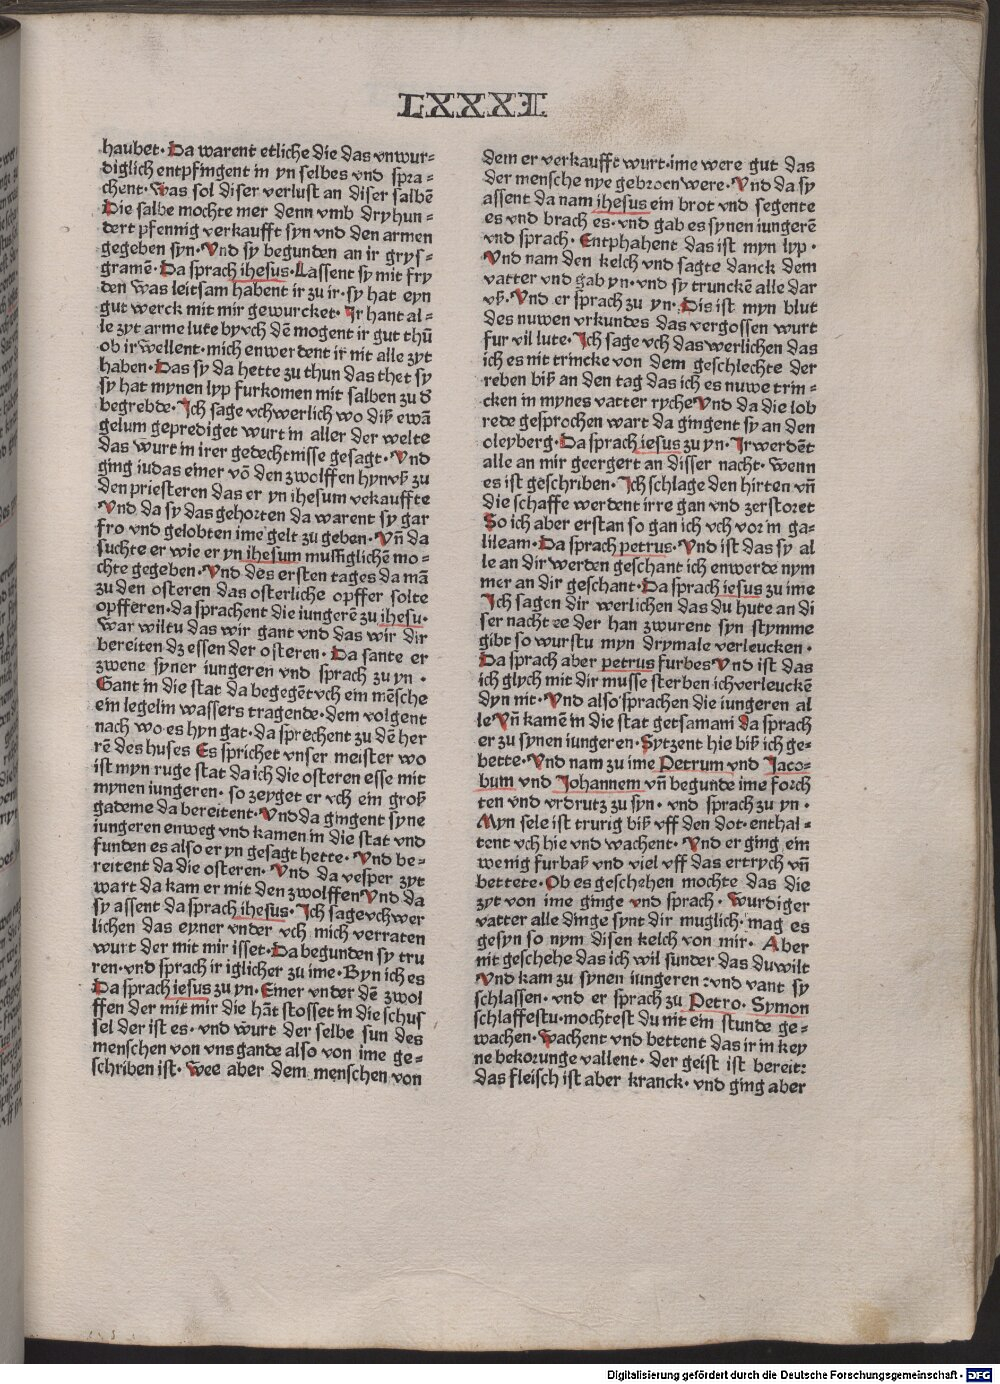 LXXXXI
haubet· Da warent etliche die das vnwur⸗
diglich entpfingent in yn selbes vnd spra⸗
chent· Was sol diser verlust an diser salbē
Die salbe mochte mer denn vmb dryhun⸗
dert pfennig verkaufft syn vnd den armen
gegeben syn· Vnd sy begunden an ir grys⸗
gramē· Da sprach ihesus· Lassent sy mit fry
den was leitsam habent ir zu ir· sy hat eyn
gut werck mit mir gewurcket· Ir hant al⸗
le zyt arme lute by vch dē mogent ir gut thū
ob ir wellent· mich enwerdent ir nit alle zyt
haben· Das sy da hette zu thun das thet sy
sy hat mynen lyp furkomen mit salben zu d
begrebde· Ich sage vch werlich wo diß ewā
gelum geprediget wurt in aller der welte
das wurt in irer gedechtnisse gesagt· Vnd
ging iudas einer vō den zwolffen hynvß zu
den priesteren das er yn ihesum vekauffte
Vnd da sy das gehorten da warent sy gar
fro vnd gelobten ime gelt zu geben· Vn̄ da
suchte er wie er yn ihesum mussiglichē mo⸗
chte gegeben· Vnd des ersten tages da mā
zu den osteren das osterliche opffer solte
opfferen· da sprachent die iungerē zu ihesu·
war wiltu das wir gant vnd das wir dir
bereiten dz essen der osteren· Da sante er
zwene syner iungeren vnd sprach zu yn·
Gant in die stat da begegēt vch ein mēsche
ein legelin wassers tragende· dem volgent
nach wo es hyn gat· da sprechent zu dē her
rē des huses Es sprichet vnser meister wo
ist myn ruge stat da ich die osteren esse mit
mynen iungeren· so zeyget er vch ein groß
gademe da bereitent· Vnd da gingent syne
iungeren enweg vnd kamen in die stat vnd
funden es also er yn gesagt hette· Vnd be⸗
reitent da die osteren· Vnd da vesper zyt
wart da kam er mit den zwolffen Vnd da
sy assent da sprach ihesus· Ich sage vch wer
lichen das eyner vnder vch mich verraten
wurt der mit mir isset· Da begunden sy tru
ren· vnd sprach ir iglicher zu ime· Byn ich es
Da sprach iesus zu yn· Einer vnder dē zwol
ffen der mit mir die hāt stosset in die schus
sel der ist es· vnd wurt der selbe sun des
menschen von vns gande also von ime ge⸗
schriben ist· Wee aber dem menschen von
dem er verkaufft wurt· ime were gut das
der mensche nye geboren were· Vnd da sy
assent da nam ihesus ein brot vnd segente
es vnd brach es· vnd gab es synen iungerē
vnd sprach· Entphahent das ist myn lyp·
Vnd nam den kelch vnd sagte danck dem
vatter vnd gab yn· vnd sy trunckē alle dar
vß· Vnd er sprach zu yn· Dis ist myn blut
des nuwen vrkundes das vergossen wurt
fur vil lute· Ich sage vch das werlichen das
ich es nit trincke von dem geschlechte der
reben biß an den tag das ich es nuwe trin⸗
cken in mynes vatter ryche Vnd da die lob
rede gesprochen wart da gingent sy an den
oleyberg· Da sprach iesus zu yn· Ir werdēt
alle an mir geergert an disser nacht· Wenn
es ist geschriben· Ich schlage den hirten vn̄
die schaffe werdent irre gan vnd zerstoret
So ich aber erstan so gan ich vch vor in ga⸗
lileam· Da sprach petrus· Vnd ist das sy al
le an dir werden geschant ich enwerde nym
mer an dir geschant· Da sprach iesus zu ime
Ich sagen dir werlichen das du hute an di
ser nacht ee der han zwurent syn stymme
gibt so wurstu myn drymale verleucken·
Da sprach aber petrus furbes Vnd ist das
ich glych mit dir musse sterben ich verleuckē
dyn nit· Vnd also sprachen die iungeren al
le Vn̄ kamē in die stat getsamani Da sprach
er zu synen iungeren· Sytzent hie biß ich ge⸗
bette· Vnd nam zu ime Petrum vnd Jaco⸗
bum vnd Johannem vn̄ begunde ime forch
ten vnd vrdrutz zu syn· vnd sprach zu yn·
Myn sele ist trurig biß vff den dot· enthal⸗
tent vch hie vnd wachent· Vnd er ging ein
wenig furbaß vnd viel vff das ertrych vn̄
bettete· Ob es geschehen mochte das die
zyt von ime ginge vnd sprach· Wurdiger
vatter alle dinge synt dir muglich· mag es
gesyn so nym disen kelch von mir· Aber
nit geschehe das ich wil sunder das du wilt
Vnd kam zu synen iungeren: vnd vant sy
schlassen· vnd er sprach zu Petro· Symon
schlaffestu· mochtest du nit ein stunde ge⸗
wachen· Wachent vnd bettent das ir in key
ne bekorunge vallent· der geist ist bereit:
das fleisch ist aber kranck· vnd ging aber
Digitalisierung gefördert durch die Deutsche Forschungsgemeinschaft - DFG